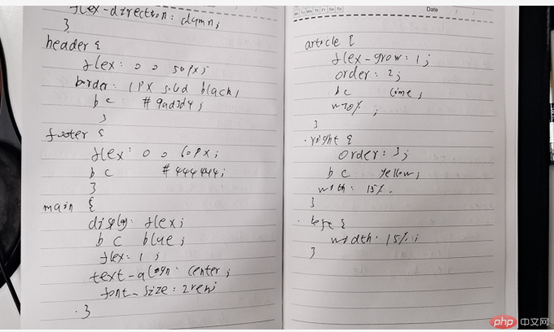 flex-direction: column;
}
header {
flex: 0 0 50px;
border: 1px solid black;
bc #9ad3d4;
}
footer {
flex: 0 0 60px;
bc #444444;
}
main {
display: flex;
bc blue;
flex: 1;
text-align: center;
font-size: 2rem;
}
Date
article {
flex-grow: 1;
order: 2;
bc lime;
w70% ;
}
.right {
order: 3;
bc yellow;
width: 15%.
}
.left {
width: 15%;
}
php 中文网